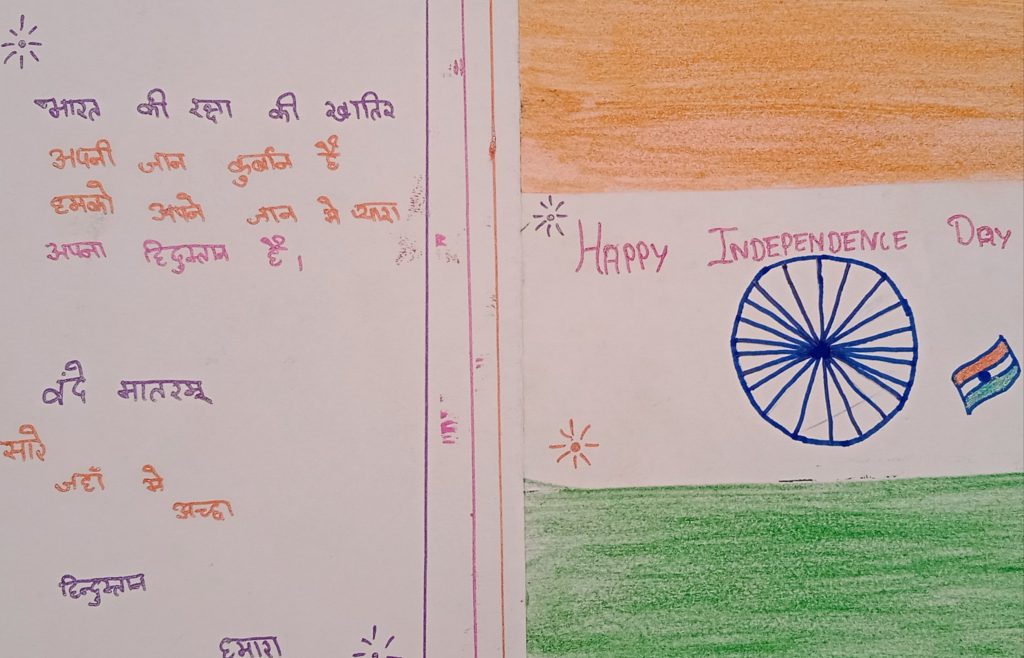 भारत की रक्षा की खातिर
अपनी जान कुर्बान है
हमको अपने जान से प्यारा
अपना हिंदुस्तान है।
वंदे मातरम्
सारे
जहाँ से
अच्छा
हिन्दुस्तान
हमारा
HAPPY INDEPENDENCE DAY